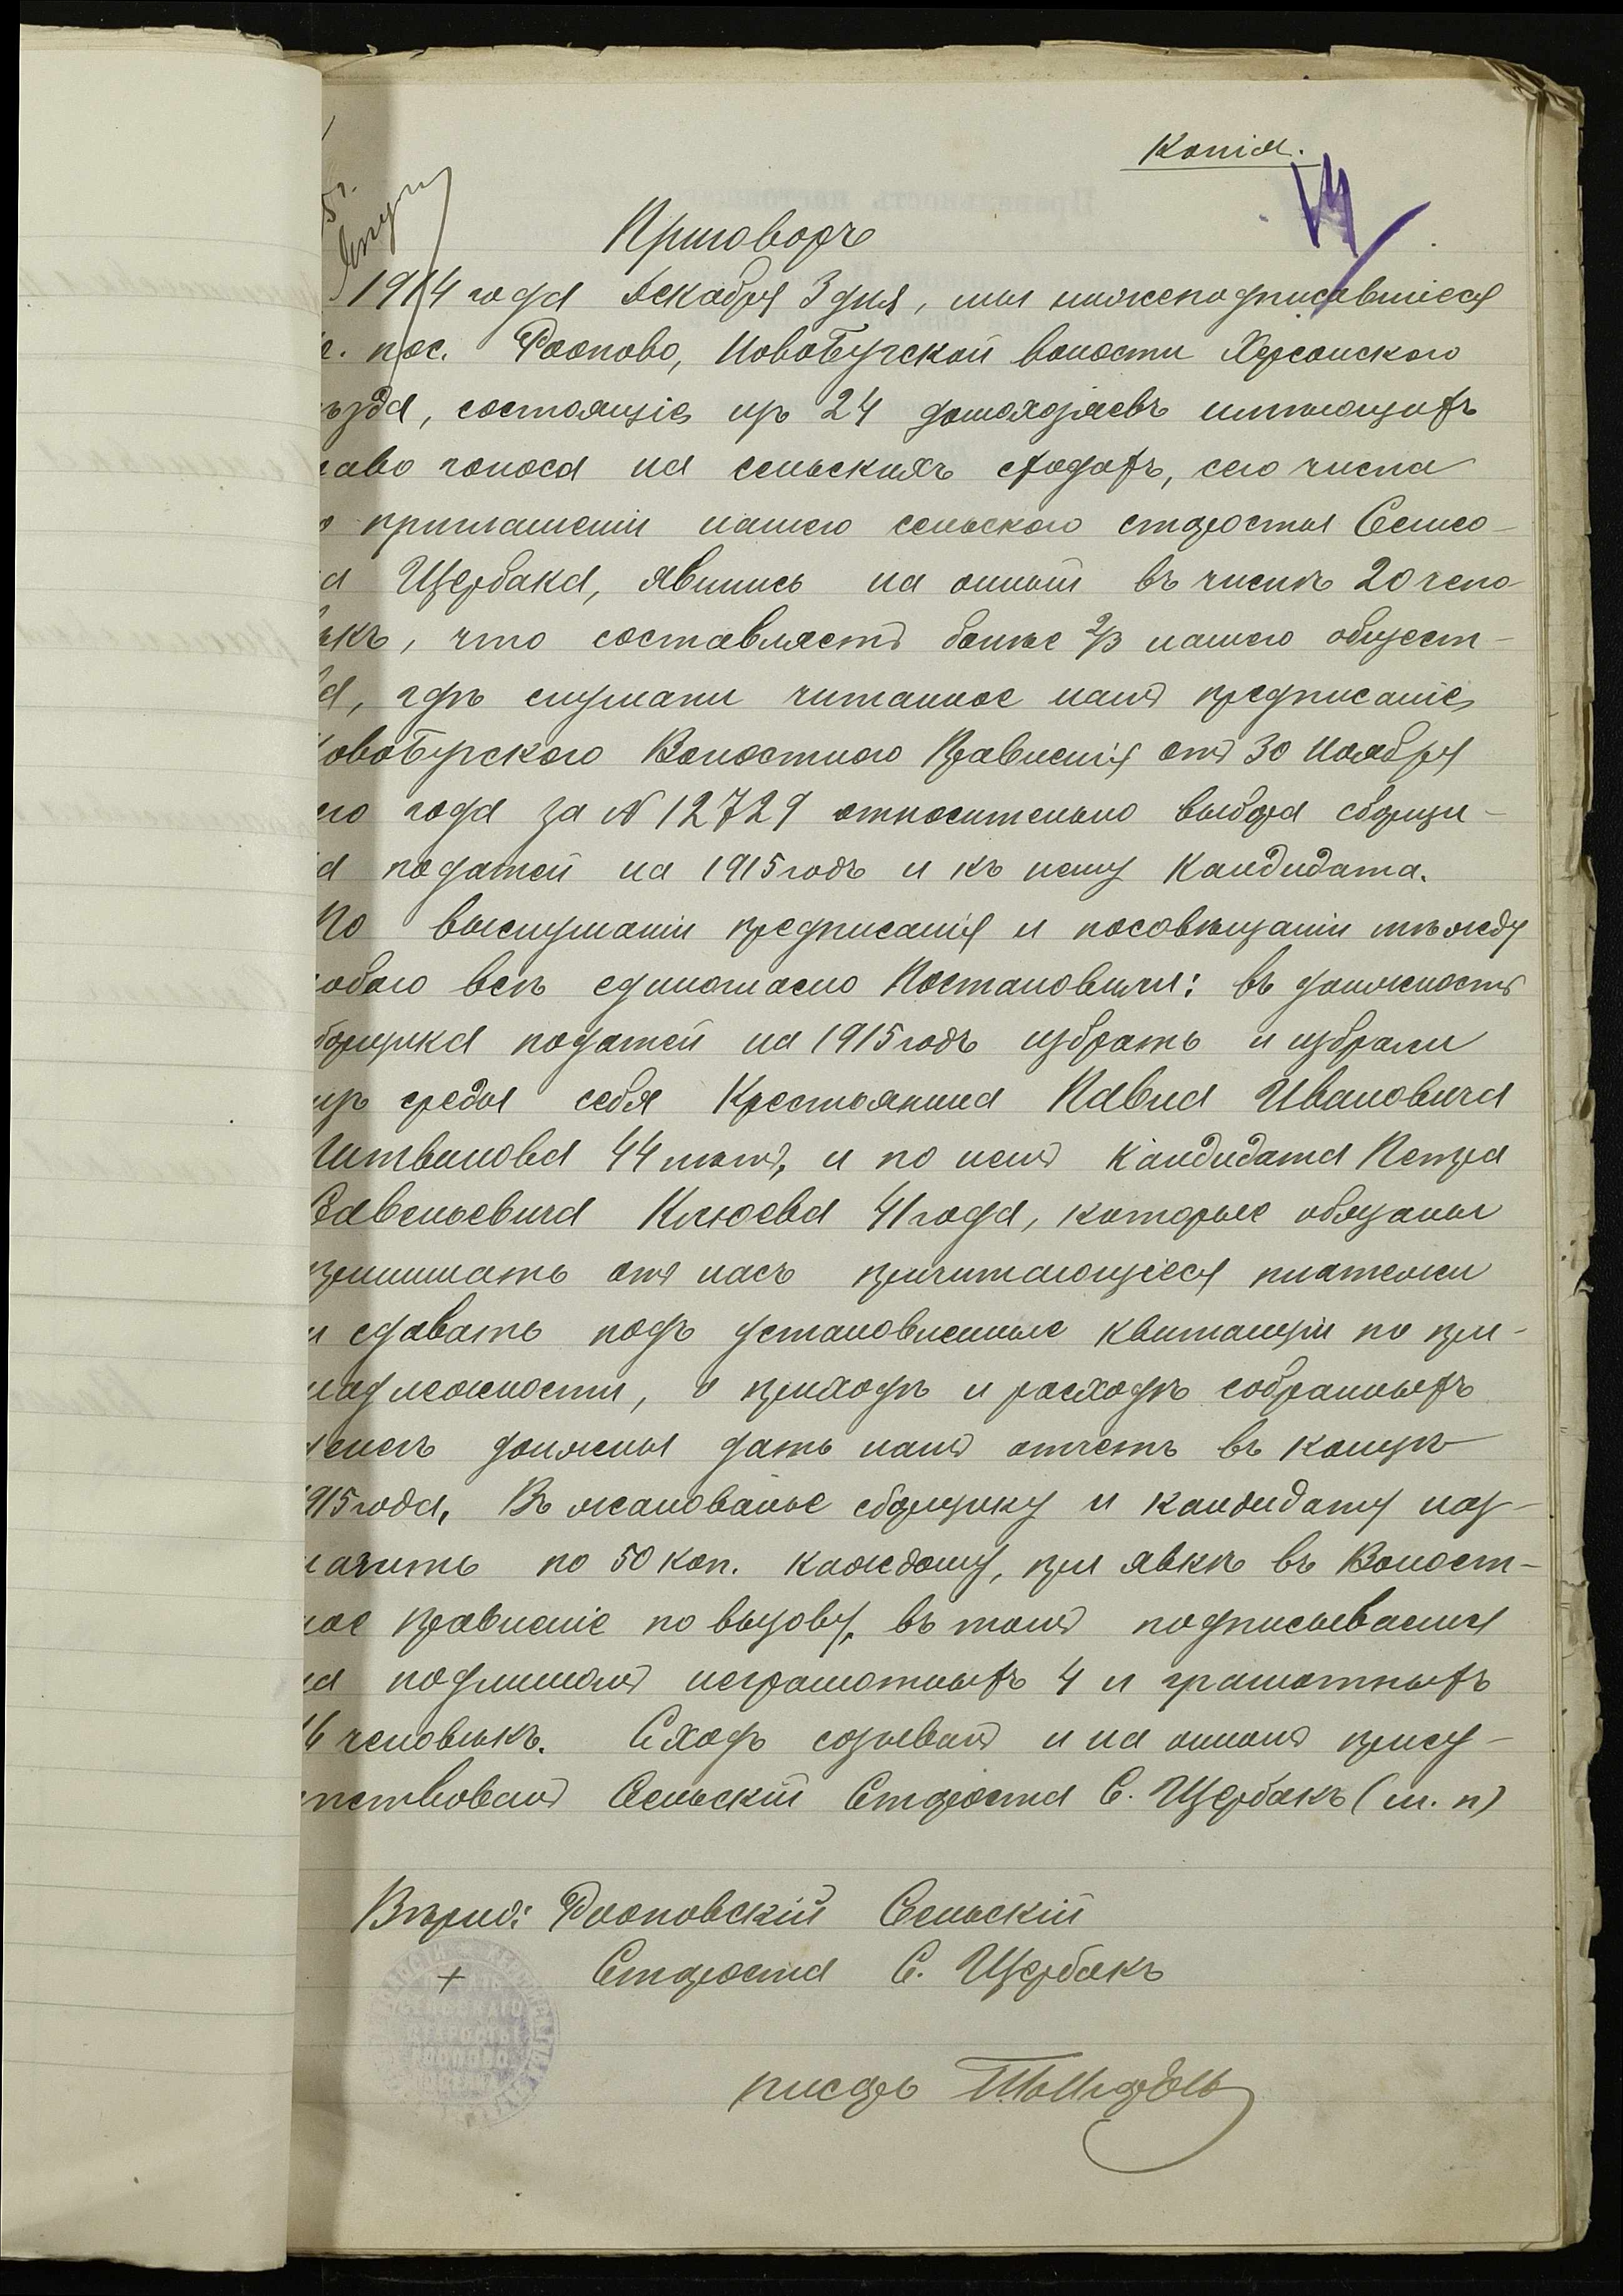 Копія.
Приговоръ
1914 года Декабря 3 дня, мы нижеподписавшіеся
пос. Фоопово, Новобугской волости Херсонскаго
ѣзда, состоящіе изъ 24 домохозяевъ имѣющихъ
раво голоса на сельскихъ сходахъ, сего числа
о приглашенію нашего сельскаго старосты Семео-
а Щербака, явились на оный въ числѣ 20 чело-
ѣкъ, что составляетъ болѣе 2/3 нашего общест-
ва, гдѣ слушали читанное намъ предписаніе
Новобугскаго Волостного Правленія отъ 30 Ноября
его года за № 12729 относительно выбора сборщи-
а податей на 1915 годъ и къ нему Кандидата.
По выслушаніи предписанія и посовѣщаніи между
обою всѣ единогласно Постановили: въ должность
борщика податей на 1915 годъ избрать и избрали
изъ среды себя Крестьянина Павла Ивановича
Литвинова 44 лѣтъ, и по немъ Кандидата Петра
Савельевича Клюева 41 года, которые обязаны
принимать отъ насъ причитающіеся платежи
и сдавать подъ установленные квитанціи по при-
надлежности, о приходѣ и расходѣ собранныхъ
денегъ должны дать намъ отчетъ въ концѣ
1915 года. Въ жалованье сборщику и кандидату наз-
начить по 50 коп. каждому, при явкѣ въ Волост-
ное правленіе по вызову, въ томъ подписываемся
на подлиномъ неграмотныхъ 4 и грамотныхъ
16 человѣкъ. Сходъ созывалъ и на ономъ прису-
тствовалъ Сельскій Староста С. Щербакъ (м. п)
Вѣрно: Фооповскій Сельскій
+ Староста С. Щербакъ
писарь